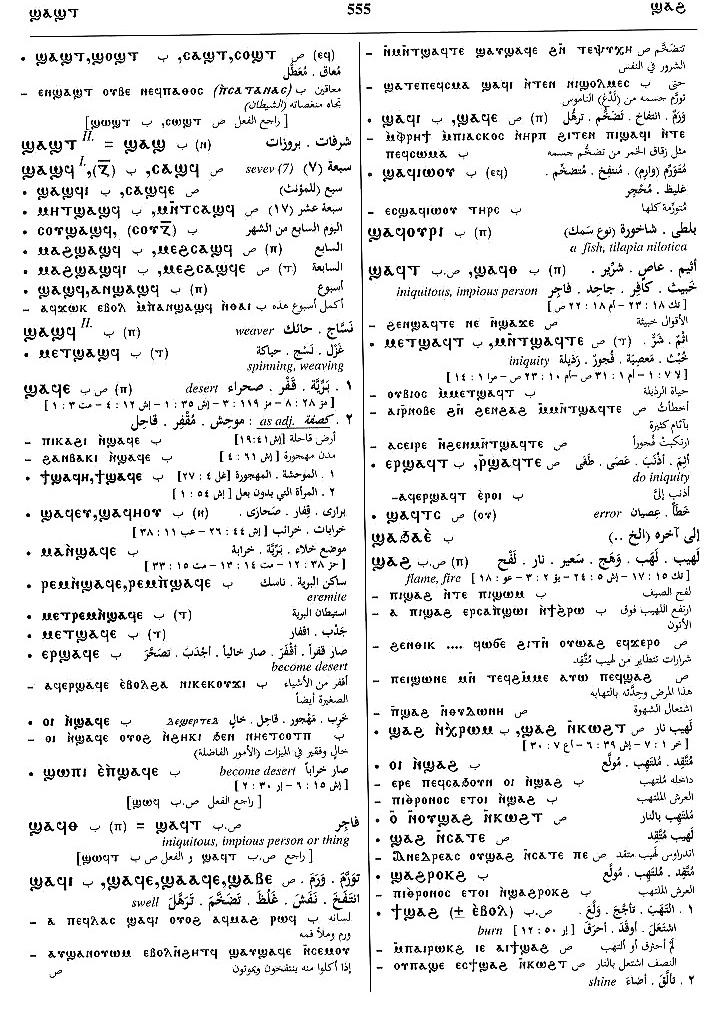 ϣⲁϣⲧ 555 ϣⲁϩ
• ϣⲁϣⲧ,ϣⲟϣⲧ ب ,ⲥⲁϣⲧ,ⲥⲟϣⲧ ص (εq)
مُعاق . مُعَطَّل
– ⲉⲛϣⲁϣⲧ ⲟⲩⲃⲉ ⲛⲉϥⲡⲁⲑⲟⲥ (ⲛ̀ⲥⲁⲧⲁⲛⲁⲥ) ب معاقين
تجاه منغصاته (الشيطان)
[راجع الفعل ص ⲥⲱϣⲧ, ب ϣⲱϣⲧ]
ϣⲁϣⲧ II. = ϣⲁϣ ب (ⲛ) شرفات . بروزات
ϣⲁϣϥ I. ,(ⲍ̅) ب ,ⲥⲁϣϥ ص sevev (7) سبعة (٧)
• ϣⲁϣϥⲓ ب ,ⲥⲁϣϥⲉ ص سبع (للمؤنث)
• ⲙⲏⲧϣⲁϣϥ ب ,ⲙⲛ̄ⲧⲥⲁϣϥ ص سبعة عشر (١٧)
• ⲥⲟⲩϣⲁϣϥ, (ⲥⲟⲩⲍ̅) ب اليوم السابع من الشهر
• ⲙⲁϩϣⲁϣϥ ب ,ⲙⲉϩⲥⲁϣϥ ص (ⲡ) السابع
• ⲙⲁϩϣⲁϣϥⲓ ب ,ⲙⲉϩⲥⲁϣϥⲉ ص (ⲧ) السابعة
• ϣⲁϣϥ,ⲁⲛϣⲁϣϥ ب (ⲡ) أسبوع
– ⲁϥϫⲱⲕ ⲉⲃⲟⲗ ⲙ̀ⲡⲁⲛϣⲁϣϥ ⲛ̀ⲑⲁⲓ ب أكمل أسبوع هذه
ϣⲁϣϥ II. ب (ⲡ) weaver نَسَّاج . حائك
• ⲙⲉⲧϣⲁϣϥ ب (ⲧ) غَزْل . نَسْج . حياكة
spinning, weaving
ϣⲁϥⲉ ص.ب (ⲡ) desert ١ . بَرِّيَّة . قَفْر . صحراء
[مز ٢٨ : ٨ – مز ١١٩ : ٣ – إش ٣٥ : ١ – إش ٤ : ١٢ – مت ٣ : ١]
٢ . كصفة as adj. : موحش . مُقْفِر . قاحل
– ⲡⲓⲕⲁϩⲓ ⲛ̀ϣⲁϥⲉ ب أرض قاحلة [إش ٤١:١٩]
– ϩⲁⲛⲃⲁⲕⲓ ⲛ̀ϣⲁϥⲉ ب مدن مهجورة [إش ٦١ : ٤]
• ϯϣⲁϥⲏ,ϯϣⲁϥⲉ ب ١ . الموحشة . المهجورة [غل ٤ : ٢٧]
٢ . المرأة التي بدون بعل [إش ٥٤ : ١]
• ϣⲁϥⲉⲩ,ϣⲁϥⲛⲟⲩ ب (ⲛ) براري . قِفار . صَحَارَى
خرابات . خرائب [إش ٤٤ : ٢٦ – عب ١١ : ٣٨]
• ⲙⲁⲛ̀ϣⲁϥⲉ ب موضع خلاء . بَرِّيَّة . خرابة
[حز ٣٨ : ١٢ – مت ١٤ : ١٣ – مت ١٥ : ٣٣]
• ⲣⲉⲙⲛ̀ϣⲁϥⲉ,ⲣⲉⲙⲡ̀ϣⲁϥⲉ ب ساكن البرية . ناسك
eremite
• ⲙⲉⲧⲣⲉⲙⲛ̀ϣⲁϥⲉ ب (ⲧ) استيطان البرية
• ⲙⲉⲧϣⲁϥⲉ ب (ⲧ) جَدْب . اقفار
• ⲉⲣϣⲁϥⲉ ب صار قفراً . أَقْفَرَ . صار خالياً . أَجْدَبَ . تَصَحَّرَ
become desert
– ⲁϥⲉⲣϣⲁϥⲉ ⲉ̀ⲃⲟⲗϩⲁ ⲛⲓⲕⲉⲕⲟⲩϫⲓ ب أقفر من الأشياء
الصغيرة أيضاً
• ⲟⲓ ⲛ̀ϣⲁϥⲉ ب خَرِب . مَهْجور . قاحل . خالٍ
– ⲟⲓ ⲛ̀ϣⲁϥⲉ ⲟⲩⲟϩ ⲛ̀ϩⲏⲕⲓ ϧⲉⲛ ⲛⲏⲉⲧⲥⲟⲧⲡ ب
خالٍ وفقير في الميزات (الأمور الفاضلة)
• ϣⲱⲡⲓ ⲉ̀ⲡ̀ϣⲁϥⲉ ب become desert صار خراباً
[إش ١٥ : ٦ – إر ٣٠ : ٢]
[راجع الفعل ص.ب ϣⲱϥ]
ϣⲁϥⲑ ب (ⲡ) = ϣⲁϥⲧ ص.ب فاجِر
iniquitous, impious person or thing
[راجع ص.ب ϣⲁϥⲧ و الفعل ص ب ϣⲱϥⲧ]
ϣⲁϥⲓ ب ,ϣⲁϥⲉ,ϣⲁⲁϥⲉ,ϣⲁⲃⲉ ص تَوَرَّمَ . وَرِمَ .
swell انْتَفَخَ . نَفَشَ . غَلُظَ . تَضَخَّمَ . تَرَهَّلَ
– ⲁ ⲡⲉϥⲗⲁⲥ ϣⲁϥⲓ ⲟⲩⲟϩ ⲁϥⲙⲁϩ ⲣⲱϥ ب لسانه
ورم وملأ فمه
– ⲁⲩϣⲁⲛⲟⲩⲱⲙ ⲉⲃⲟⲗⲛ̄ϩⲏⲧϥ ϣⲁⲩϣⲁϥⲉ ⲛ̄ⲥⲉⲙⲟⲩ
ص إذا أكلوا منه ينتفخون ويموتون
– ⲛ̄ⲙⲛ̄ⲧϣⲁϥⲧⲉ ϣⲁⲩϣⲁϥⲉ ϩⲛ̄ ⲧⲉⲯⲩⲭⲏ ص تتضخَّم
الشرور في النفس
– ϣⲁⲧⲉⲡⲉϥⲥⲙⲁ ϣⲁϥⲓ ⲛ̀ⲧⲉⲛ ⲛⲓϣⲟⲗⲙⲉⲥ ب حتى
تورَّم جسمه من (لَدْغ) الناموس
• ϣⲁϥⲓ ب ,ϣⲁϥⲉ ص (ⲡ) وَرَم . انتفاخ . تَضَخُّم . ترهُّل
– ⲙ̀ⲫⲣⲏϯ ⲙ̀ⲡⲓⲁⲥⲕⲟⲥ ⲛ̀ⲏⲣⲡ ϩⲓⲧⲉⲛ ⲡⲓϣⲁϥⲓ ⲛ̀ⲧⲉ
ⲡⲉϥⲥⲱⲙⲁ ب مثل زقاق الخمر من تضخُّم جسمه
• ϣⲁϥⲓⲱⲟⲩ ب (εq) مُتَوَرِّم (وارِم) . مُنتفِخ . مُتضخِّم .
غليظ . مُحْجِر
– ⲉⲥϣⲁϥⲓⲱⲟⲩ ⲧⲏⲣⲥ ب مُتَوَرِّمة كلها
ϣⲁϥⲟⲩⲣⲓ ب (ⲡ) بلطي . شاخورة (نوع سَمَك)
a fish, tilapia nilotica
ϣⲁϥⲧ ص.ب ,ϣⲁϥⲑ ب (ⲡ) أَثيم . عاصٍ . شرِّير .
iniquitous, impious person خَبيث . كافِر . جاحِد . فاجِر
[تك ١٨ : ٢٣ – أم ١٨ : ٢٢ ص]
– ϩⲉⲛϣⲁϥⲧⲉ ⲛⲉ ⲛ̄ϣⲁϫⲉ ص الأقوال خبيثة
• ⲙⲉⲧϣⲁϥⲧ ب ,ⲙⲛ̄ⲧϣⲁϥⲧⲉ ص (ⲧ) اثْم . شَرّ .
iniquity خُبْث . مَعصِيَة . فُجور . رَذيلة
[١ ٧ : ٧ – أم ١ : ٣١ ص – أم ١٠ : ٢٣ ص – مرا ١ : ١٤]
– ⲟⲩⲃⲓⲟⲥ ⲙ̀ⲙⲉⲧϣⲁϥⲧ ب حياة الرذيلة
– ⲁⲓⲣ̄ⲛⲟⲃⲉ ϩⲛ ϩⲉⲛϩⲁϩ ⲙ̄ⲙⲛ̄ⲧϣⲁϥⲧⲉ ص أخطأتُ
بآثام كثيرة
– ⲁⲥⲉⲓⲣⲉ ⲛ̄ϩⲉⲛⲙⲛ̄ⲧϣⲁϥⲧⲉ ص ارتكبتْ فُجوراً
• ⲉⲣϣⲁϥⲧ ب ,ⲣ̄ϣⲁϥⲧⲉ ص أثِمَ . أذْنَبَ . عَصَى . طَغَى
do iniquity
–ⲁϥⲉⲣϣⲁϥⲧ ⲉ̀ⲣⲟⲓ ب أذنب إليَّ
• ϣⲁϥⲧⲥ ص (ⲟⲩ) error خَطَأ . عِصيان
ϣⲁϧⲁⲉ̀ ب إلى آخره (الخ ..)
ϣⲁϩ ص.ب (ⲡ) لَهيب . لَهَب . وَهَج . سَعير . نار . لَفْح
flame, fire [تك ١٥ : ١٧ – إش ٥ : ٢٤ – يؤ ٢ : ٣ – عو : ١٨]
– ⲡⲓϣⲁϩ ⲛ̀ⲧⲉ ⲡⲓϣⲱⲙ ب لفح الصيف
– ⲁ ⲡⲓϣⲁϩ ⲉⲣⲥⲁⲡ̀ϣⲱⲓ ⲛ̀ϯϩⲣⲱ ب ارتفع اللهيب فوق
الأتون
– ϩⲉⲛⲑⲓⲕ .... ϥⲱϭⲉ ϩⲓⲧⲛ ⲟⲩϣⲁϩ ⲉϥϫⲉⲣⲟ ص
شرارات تتطاير من لهيب مُتَّقِد
– ⲡⲉⲓϣⲱⲛⲉ ⲙⲛ̄ ⲧⲉϥϩⲙ̄ⲙⲉ ⲁⲩⲱ ⲡⲉϥϣⲁϩ ص
هذا المرض وحِدَّته بالتهابه
– ⲡ̄ϣⲁϩ ⲛ̄ⲑⲩⲇⲱⲛⲏ ص اشتعال الشهوة
• ϣⲁϩ ⲛ̀ⲭⲣⲱⲙ ب ,ϣⲁϩ ⲛ̄ⲕⲱϩⲧ ص لَهيب نار
[خر ١ : ٧ – إش ٣٩ : ٦ – أع ٧ : ٣٠]
• ⲟⲓ ⲛ̀ϣⲁϩ ب مُتَّقِد . مُلتَهِب . مُولَع
– ⲉⲣⲉ ⲡⲉϥⲥⲁϧⲟⲩⲛ ⲟⲓ ⲛ̀ϣⲁϩ ب داخله ملتهب
– ⲡⲓⲑ̀ⲣⲟⲛⲟⲥ ⲉⲧⲟⲓ ⲛ̀ϣⲁϩ ب العرش الملتهب
• ⲟ̀ ⲛ̄ⲟⲩϣⲁϩ ⲛ̄ⲕⲱϩⲧ ص مُلتَهِب بالنار
• ϣⲁϩ ⲛ̄ⲥⲁⲧⲉ ص لَهيب مُتَّقِد
– ⲁⲛⲇⲣⲉⲁⲥ ⲟⲩϣⲁϩ ⲛ̄ⲥⲁⲧⲉ ⲡⲉ ص اندراوس لهيب متقد
• ϣⲁϩⲣⲟⲕϩ ب مُتَّقِد . مُلتَهِب . مُولَع
– ⲡⲓⲑ̀ⲣⲟⲛⲟⲥ ⲉⲧⲟⲓ ⲛ̀ϣⲁϩⲣⲟⲕϩ ب العرش الملتهب
• ϯϣⲁϩ (± ⲉ̀ⲃⲟⲗ) ص.ب ١ . التَهَبَ . تَأجَّجَ . وَلَّعَ .
burn اشتَعَلَ . أَوقَدَ . أحرَقَ [إر ٥٠ : ١٢]
– ⲙ̀ⲡⲁⲓⲣⲱⲕϩ ⲓⲉ ⲁⲓϯϣⲁϩ ب لم أحترق أو ألتهب
– ⲟⲩⲡⲁϣⲉ ⲉⲥϯϣⲁϩ ⲛ̄ⲕⲱϩⲧ ص النصف اشتعل بالنار
٢ . تألَّقَ . أضاءَ shine